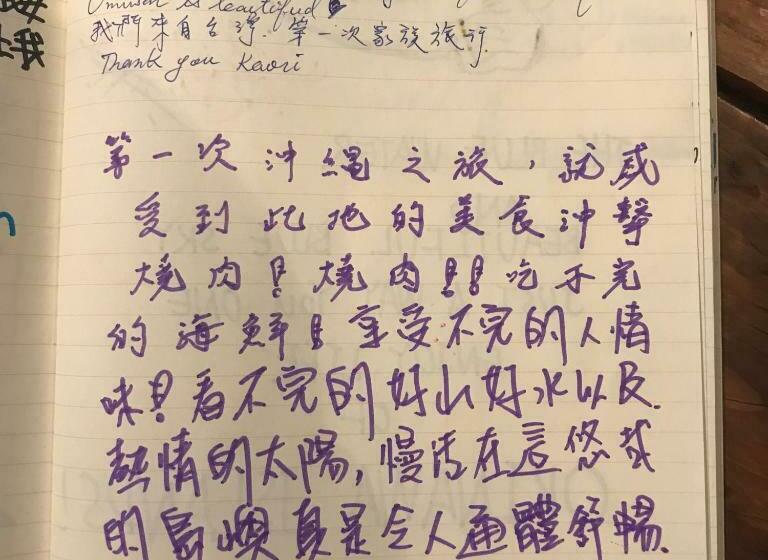 is beautiful
我們來自台灣. 第一次家族旅行
Thank you Kaori
第一次沖繩之旅，就感
受到此地的美食沖擊
燒肉！燒肉！！吃不完
的海鮮！享受不完的人情
味！看不完的好山好水以及
熱情的太陽，慢活在這悠哉
的島嶼真是令人通體舒暢.